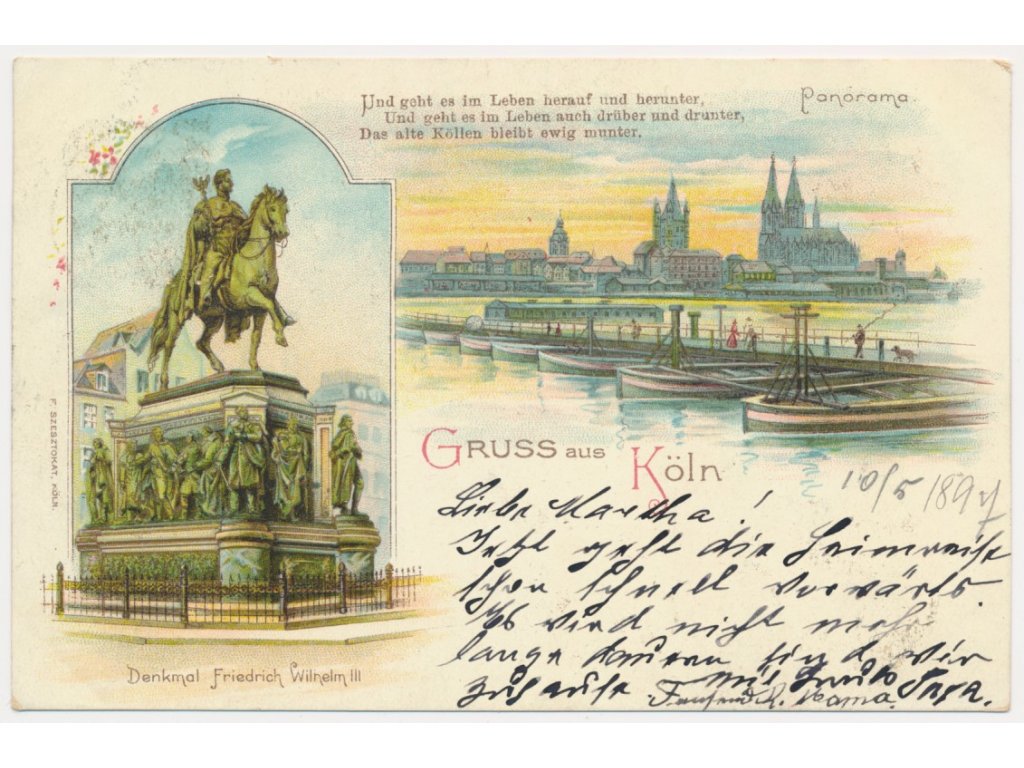 Und geht es im Leben herauf und herunter,
Und geht es im Leben auch drüber und drunter,
Das alte Köllen bleibt ewig munter.
Panorama.
GRUSS aus
Köln
10/5 1897
Liebe Martha!
Jetzt geht die Heimreise
schon schnell vorwärts.
Es wird nicht mehr
lange dauern sind wir
zuhause. Mit Gruß Papa.
Mama.
Denkmal Friedrich Wilhelm III
F. SZESZTOKAT, KÖLN.